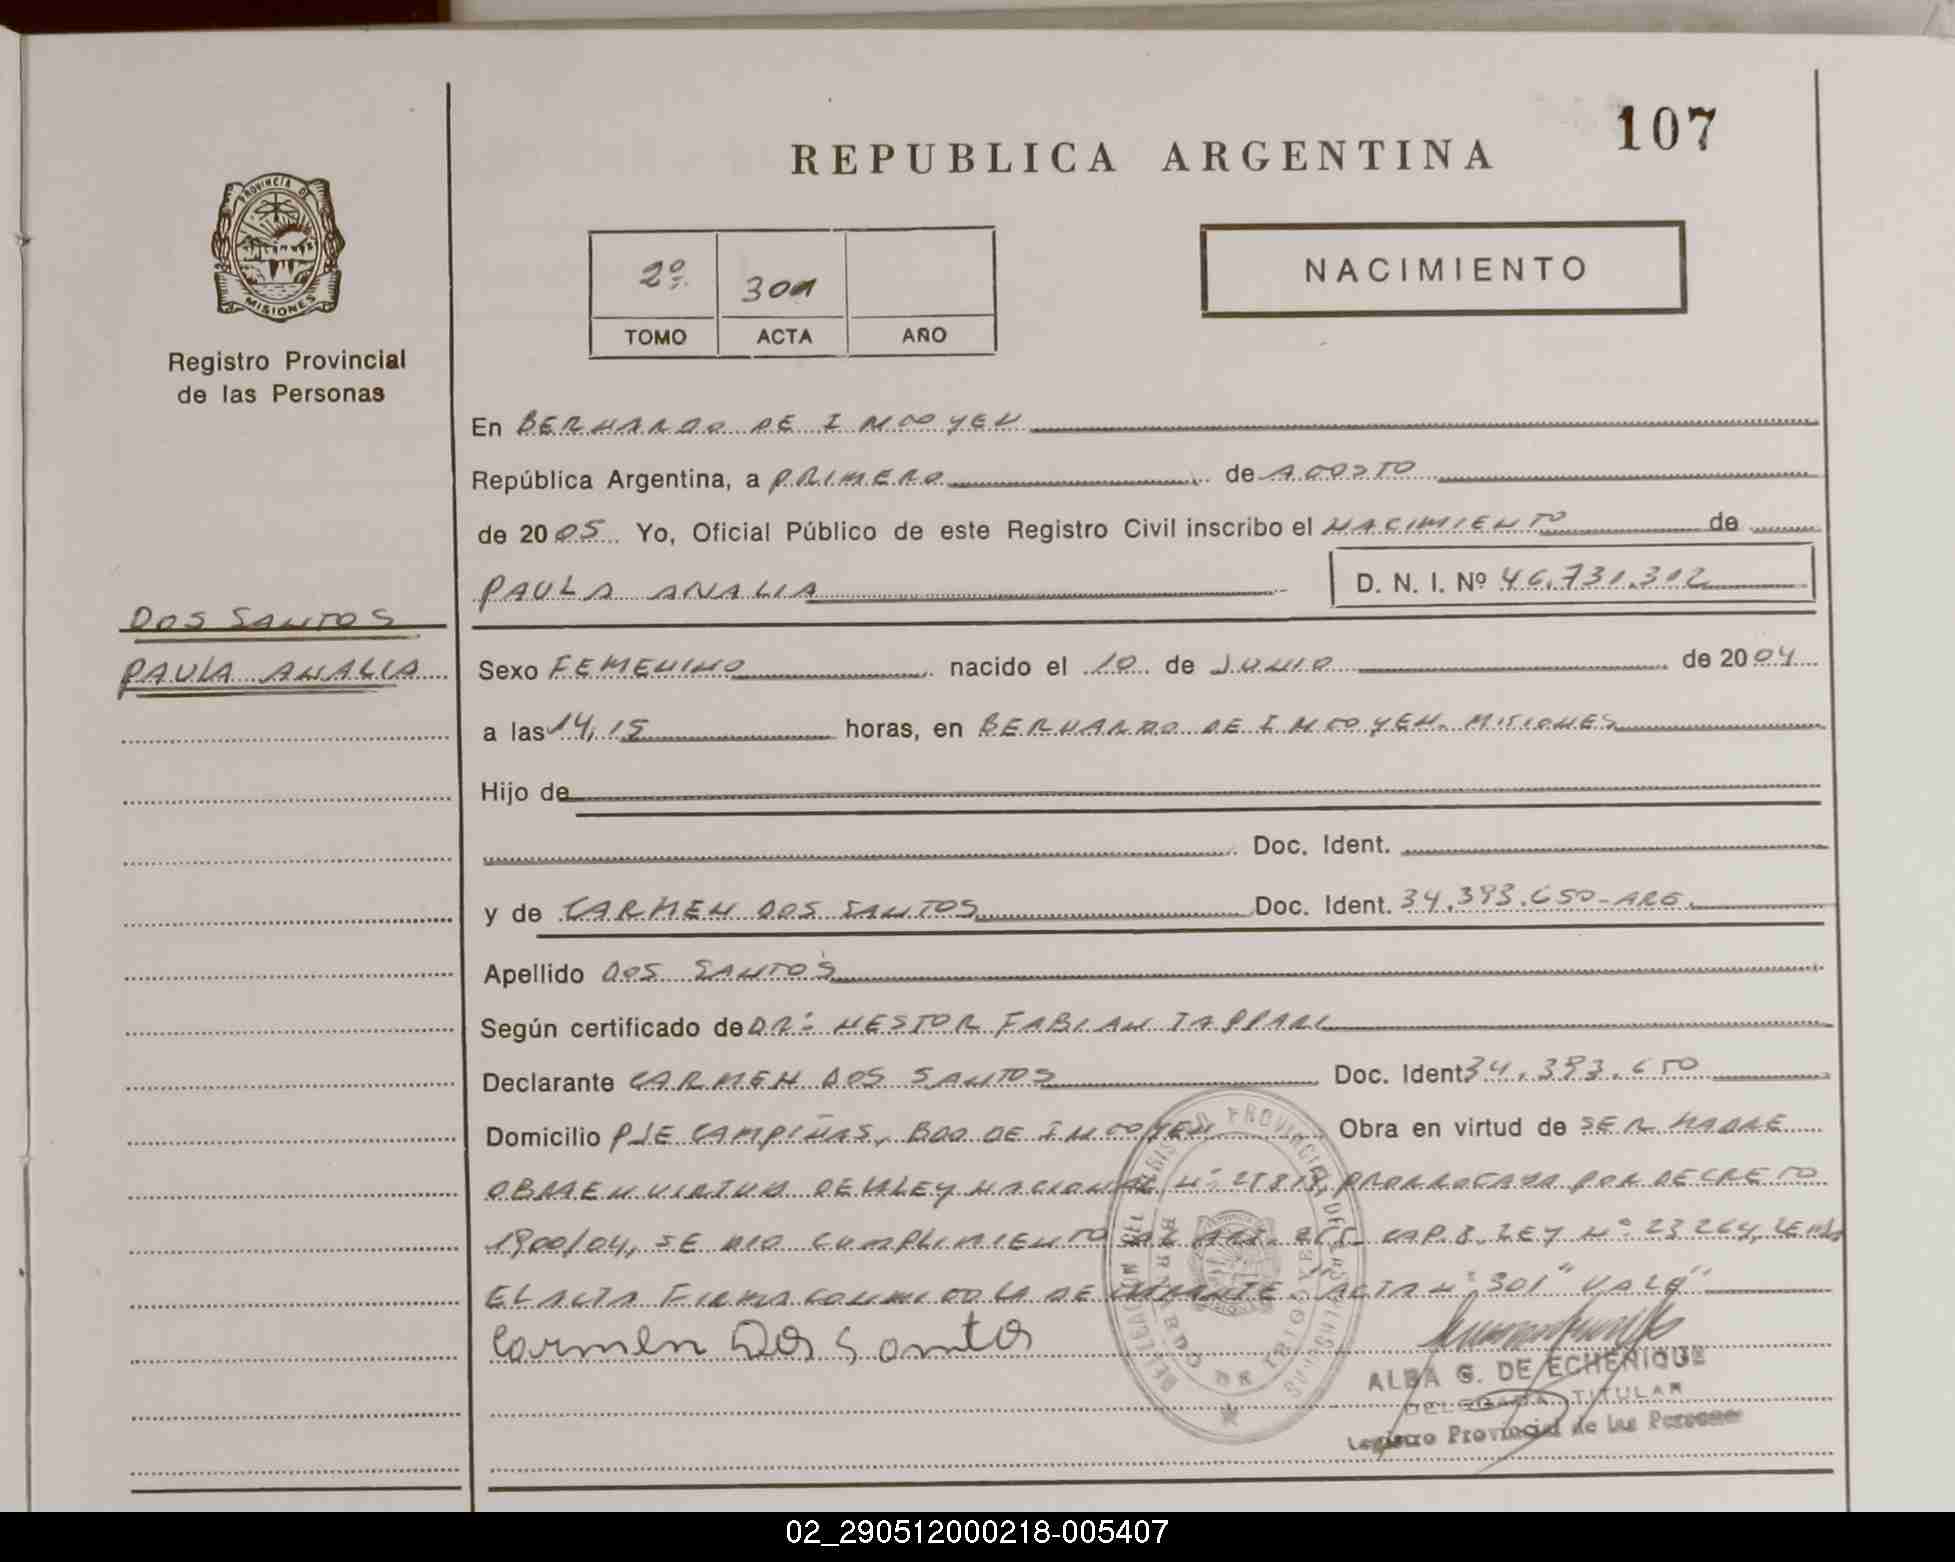 107
REPUBLICA ARGENTINA
PROVINCIA DE
MISIONES
Registro Provincial
de las Personas
2º 301
TOMO ACTA AÑO
NACIMIENTO
En BERNARDO DE IRIGOYEN
República Argentina, a PRIMERO de AGOSTO
de 2005 Yo, Oficial Público de este Registro Civil inscribo el NACIMIENTO de
PAULA ANALIA D. N. I. Nº 46.731.312
DOS SANTOS
PAULA ANALIA
Sexo FEMENINO nacido el 10 de JUNIO de 2004
a las 14,15 horas, en BERNARDO DE IRIGOYEN. MISIONES
Hijo de
Doc. Ident.
y de CARMEN DOS SANTOS Doc. Ident. 34.393.650-ARG.
Apellido DOS SANTOS
Según certificado de DR: NESTOR FABIAN TAPPARI
Declarante CARMEN DOS SANTOS Doc. Ident 34.393.650
Domicilio PJE CAMPIÑAS, BDO DE IRIGOYEN Obra en virtud de SER MADRE
OBRA EN VIRTUD DE LA LEY NACIONAL Nº 25818, PRORROGADA POR DECRETO
1900/04, SE DIO CUMPLIMIENTO AL ART. CAP. 8. LEY Nº 23264, LEIDA
EL ACTA FIRMA CONMIGO LA DECLARANTE. "ACTA Nº 301" VALE"
Carmen Dos Santos
DELEGACION DEL REGISTRO PROVINCIAL DE LAS PERSONAS
BERNARDO DE IRIGOYEN
ALBA G. DE ECHENIQUE
DELEGADA TITULAR
Registro Provincial de las Personas
02_290512000218-005407